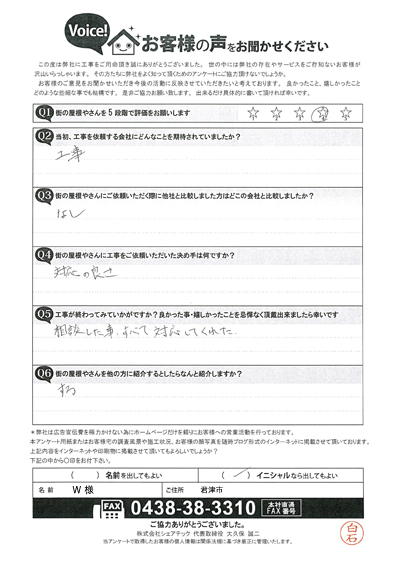 Voice!
お客様の声をお聞かせください
この度は弊社に工事をご用命頂き誠にありがとうございました。世の中には弊社の存在やサービスをご存知ないお客様が
沢山いらっしゃいます。その方たちに弊社をよく知って頂くためのアンケートにご協力頂けないでしょうか。
お客様のご意見をお聞かせいただき今後の活動に反映させていただきたいと考えております。良かったこと、嬉しかったこと
どのような些細な事でも結構です。是非ご協力お願い致します。出来るだけ具体的に書いて頂ければ幸いです。
Q1 街の屋根やさんを5段階で評価をお願いします
Q2 当初、工事を依頼する会社にどんなことを期待されていましたか?
工事
Q3 街の屋根やさんにご依頼いただく際に他社と比較しました方はどこの会社と比較しましたか?
なし
Q4 街の屋根やさんに工事をご依頼いただいた決め手は何ですか?
対応の良さ
Q5 工事が終わってみていかがですか?良かった事・嬉しかったことを忌憚なく頂戴出来ましたら幸いです
相談した事、すべて対応してくれた
Q6 街の屋根やさんを他の方に紹介するとしたらなんと紹介しますか?
する
*弊社は広告宣伝費を極力かけない為にホームページだけを頼りにお客様への営業活動を行っております。
本アンケート用紙またはお客様宅の調査風景や施工状況、お客様の顔写真を随時ブログ形式のインターネットに掲載させて頂いております。
上記内容をインターネットや印刷物に掲載させて頂いてもよろしいでしょうか?
下記の中から〇印をお付け下さい。
( ) 名前を出してもよい
( ) イニシャルなら出してもよい
名前 W 様 ご住所 君津市
FAX 0438-38-3310 本社直通 FAX番号
ご協力ありがとうございました。
株式会社シェアテック 代表取締役 大久保 誠二
当アンケートで取得したお客様の個人情報は関係法規に基づき厳正に管理いたします。
白石